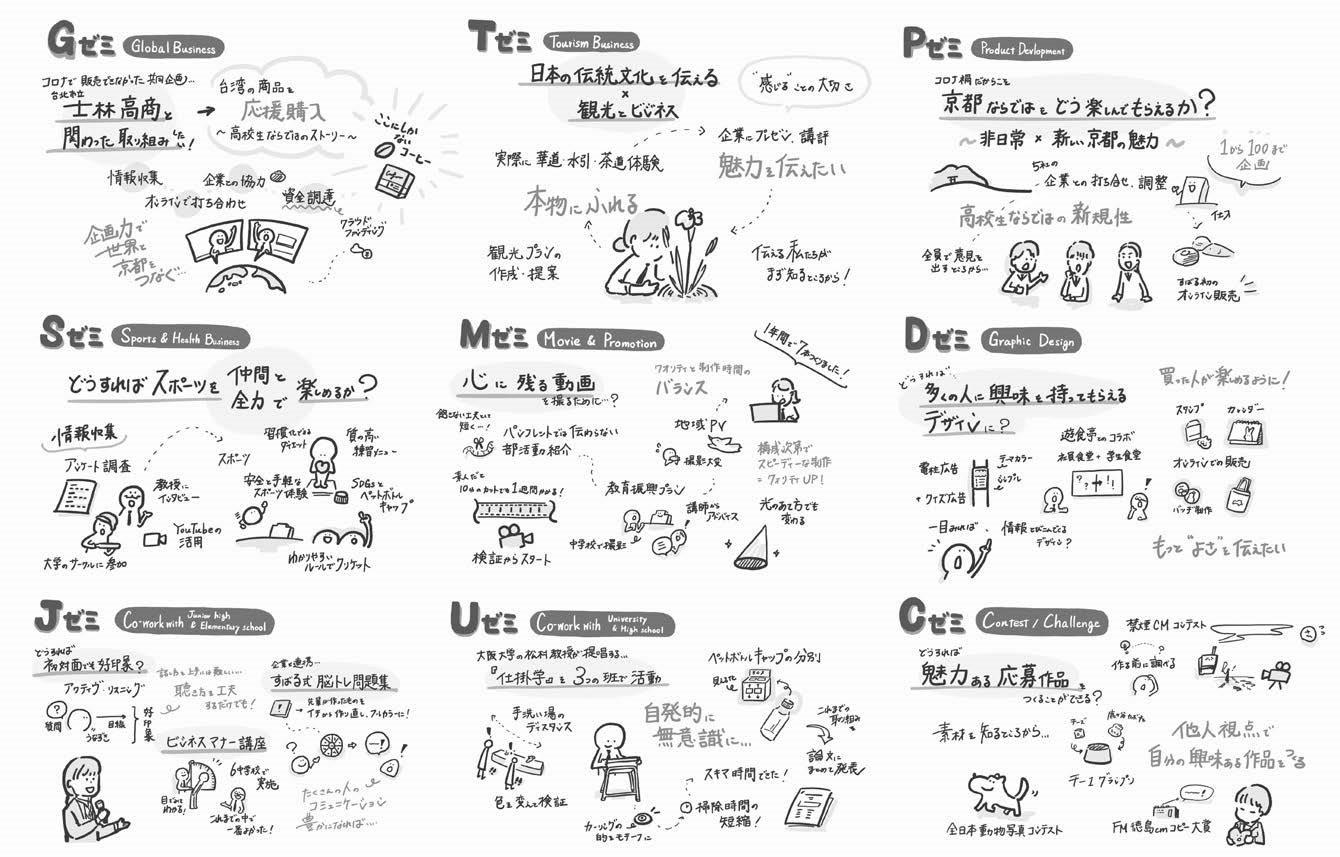 Gゼミ Global Business
コロナで販売できなかった共同企画…
台北市立
士林高商と
関わった取り組みしたい!
→
台湾の商品を
応援購入
〜高校生ならではのストーリー〜
ここにしかない
コーヒー
情報収集
企業との協力
オンラインで打ち合わせ
資金調達
クラウド
ファンディング
企画力で
世界と
京都を
つなぐ…
Tゼミ Tourism Business
日本の伝統文化を伝える
×
観光とビジネス
"感じる"ことの大切さ
企業にプレゼン、講評
実際に華道・水引・茶道体験
魅力を伝えたい
本物にふれる
観光プランの
作成・提案
伝える私たちが
まず知るところから!
Pゼミ Product Devlopment
コロナ禍だからこそ
京都ならではをどう楽しんでもらえるか?
〜非日常×新しい京都の魅力〜
1から100まで
企画
5社の
企業との打ち合せ、調整
高校生ならではの新規性
仕入
全員で意見を
出すところから…
すばる初の
オンライン販売
Sゼミ Sports & Health Business
どうすればスポーツを仲間と
全力で
楽しめるか?
情報収集
アンケート調査
教授に
インタビュー
YouTubeの
活用
大学のサークルに参加
スポーツ
習慣化できる
ダイエット
質の高い
練習メニュー
安全と手軽な
スポーツ体験
SDGsと
ペットボトル
キャップ
わかりやすい
ルールでクリケット
Mゼミ Movie & Promotion
1年間で7本つくりました!
心に残る動画
を撮るために…?
クオリティと制作時間の
バランス
飽きない工夫として
短く…!
パンフレットでは伝わらない
部活動紹介
地域PV
撮影大変
構成次第で
スピーディーな制作
=クオリティUP!
10分のカットでも1週間かかる!
教育振興プラン
講師から
アドバイス
中学校で撮影
光のあて方でも
変わる
検証からスタート
Dゼミ Graphic Design
どうすれば
多くの人に興味を持ってもらえる
デザインに?
買った人が楽しめるように!
スタンプ
カレンダー
オンラインでの販売
バッチ制作
遊食亭とのコラボ
社員食堂+学生食堂
電柱広告
テーマカラー
シンプル
+クイズ広告
一目みれば、
情報とびこんでくる
デザイン?
もっと"よさ"を伝えたい
Jゼミ Co-work with Junior high & Elementary school
どうすれば
初対面でも好印象?
アクティヴ・リスニング
質問
目線
うなずき
好印象
話し方上手には難しい…
聴き方を工夫
するだけでも!
企業と連携…
すばる式 脳トレ問題集
先輩が作ったものを
イチから作り直し、フルカラーに!
ビジネスマナー講座
目でみて
わかる!
6中学校で
実施
これまでの中で
一番よかった!
たくさんの人の
コミュニケーション
豊かになれば…
Uゼミ Co-work with University & High school
大阪大学の松村教授が提唱する…
『仕掛学』を3つの班で活動
ペットボトルキャップの分別
手洗い場の
ディスタンス
自発的に
無意識に…
これまでの
取り組み
論文に
まとめて発表
色を変えて検証
スキマ時間できた!
掃除時間の
短縮!
カーリングの
的をモチーフに
Cゼミ Contest / Challenge
どうすれば
魅力ある応募作品を
つくることができる?
禁煙CMコンテスト
作る前に調べる
素材を知るところから…
チーズ
テー1グランプリ
他人視点で
自分の興味ある作品をつくる
全日本動物写真コンテスト
FM徳島cmコピー大賞